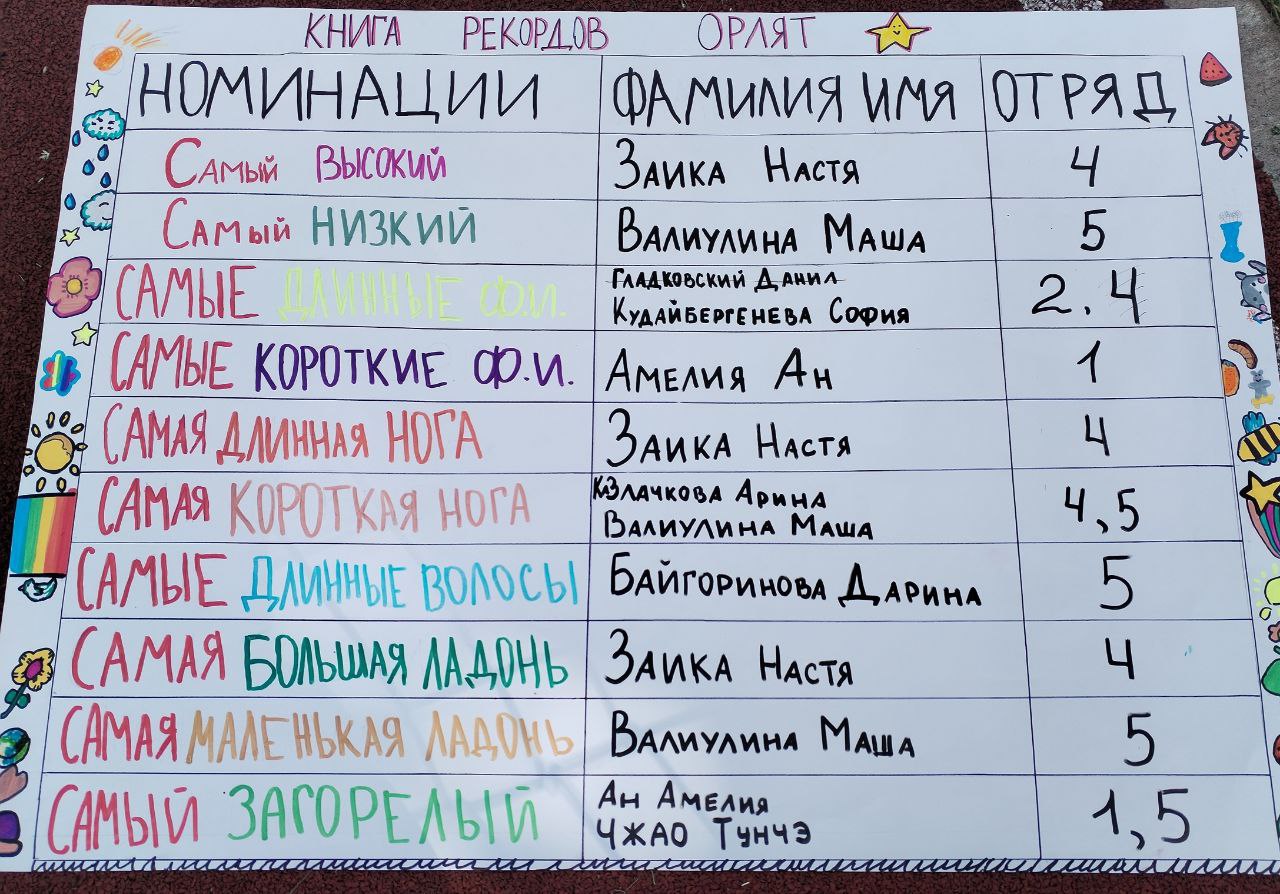 КНИГА РЕКОРДОВ ОРЛЯТ
НОМИНАЦИИ ФАМИЛИЯ ИМЯ ОТРЯД
Самый ВЫСОКИЙ Заика Настя 4
Самый НИЗКИЙ Валиулина Маша 5
САМЫЕ ДЛИННЫЕ Ф.И. Гладковский Данил
Кудайбергенева София 2.4
САМЫЕ КОРОТКИЕ Ф.И. Амелия Ан 1
САМАЯ ДЛИННАЯ НОГА Заика Настя 4
САМАЯ КОРОТКАЯ НОГА Казлачкова Арина
Валиулина Маша 4,5
САМЫЕ ДЛИННЫЕ ВОЛОСЫ Байгоринова Дарина 5
САМАЯ БОЛЬШАЯ ЛАДОНЬ Заика Настя 4
САМАЯ МАЛЕНЬКАЯ ЛАДОНЬ Валиулина Маша 5
САМЫЙ ЗАГОРЕЛЫЙ Ан Амелия
Чжао Тунчэ 1,5